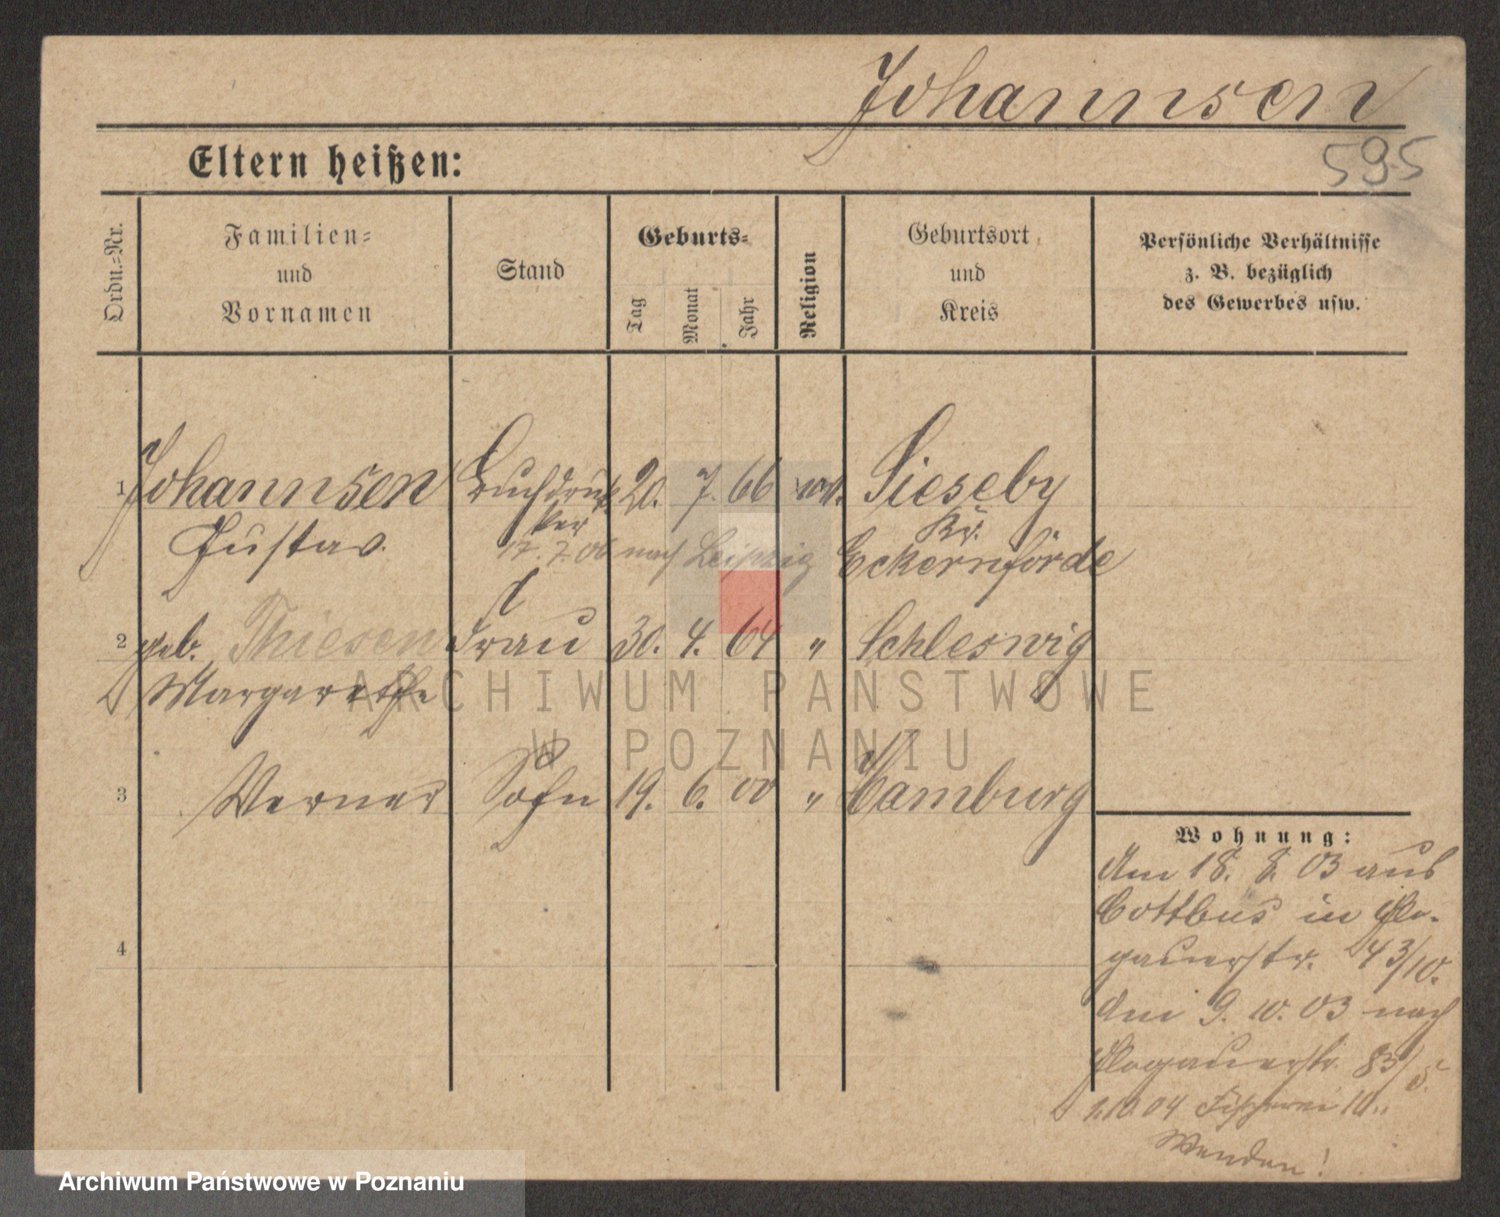 Johannsen
595
Eltern heißen:
Ordn.-Nr.
Familien-
und
Vornamen
Stand
Geburts-
Tag
Monat
Jahr
Religion
Geburtsort
und
Kreis
Persönliche Verhältnisse
z. B. bezüglich
des Gewerbes usw.
1 Johannsen Buchdruk- 20. 7. 66 Sieseby
ker Kr.
Gustav. 17. 7. 06 nach Leipzig Eckernförde
2 geb. Thiesen Frau 30. 4. 64 " Schleswig
Margarethe
3 Werner Sohn 19. 6. 00 " Hamburg
4
Wohnung:
Am 18. 8. 03 aus
Cottbus in Glo-
gauerstr. 43/10.
Am 9. 10. 03 nach
Glogauerstr. 83/
1.10.04 Fischerei 10.
Wenden!
ARCHIWUM PAŃSTWOWE
W POZNANIU
Archiwum Państwowe w Poznaniu